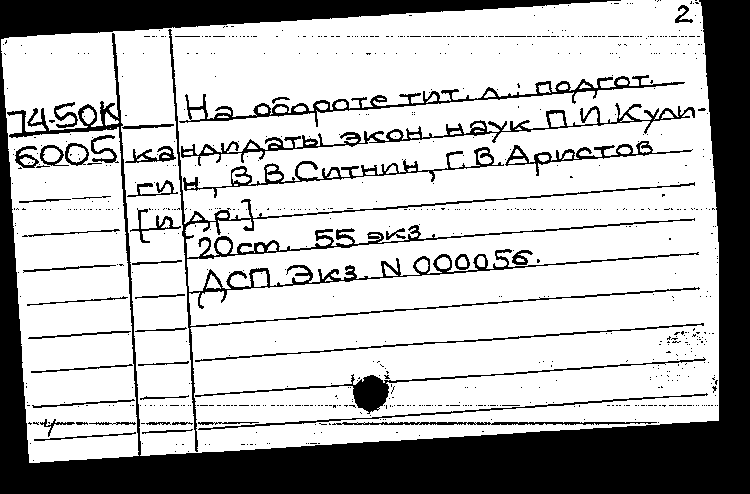 2
74-50К На обороте тит. л.: подгот.
6005 кандидаты экон. наук П.И.Кули-
гин, В.В.Ситнин, Г.В.Аристов
[и др.].
20cm. 55 экз.
ДСП. Экз. N 000056.
4